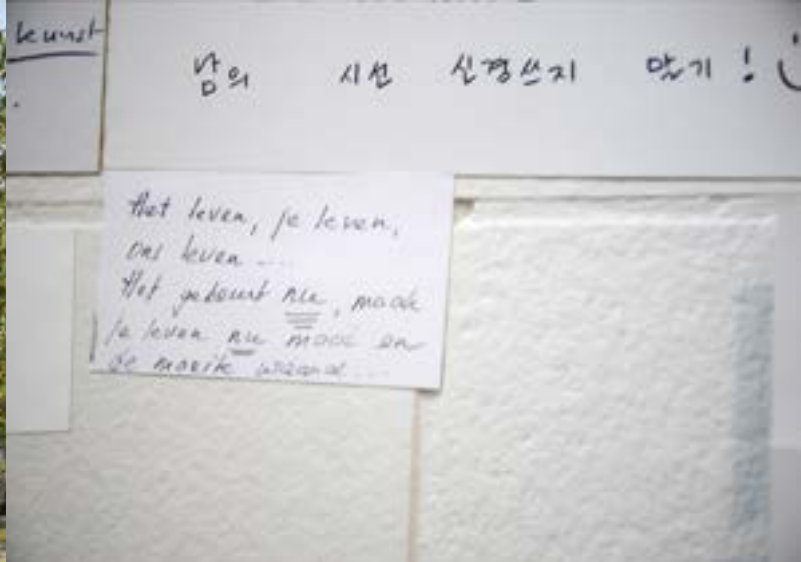 kunst
남의 시선 신경쓰지 않기! :)
Het leven, je leven,
ons leven ....
Het gebeurt nu, maak
je leven nu mooi en
de moeite waard ...